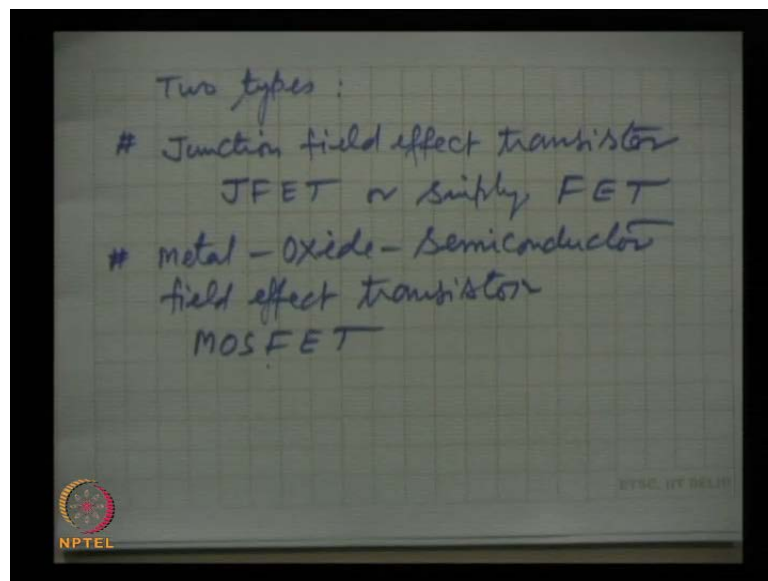 Two types :
# Junction field effect transistor
JFET or simply FET
# Metal - Oxide - Semiconductor
field effect transistor
MOSFET
ETSC, IIT DELHI
NPTEL